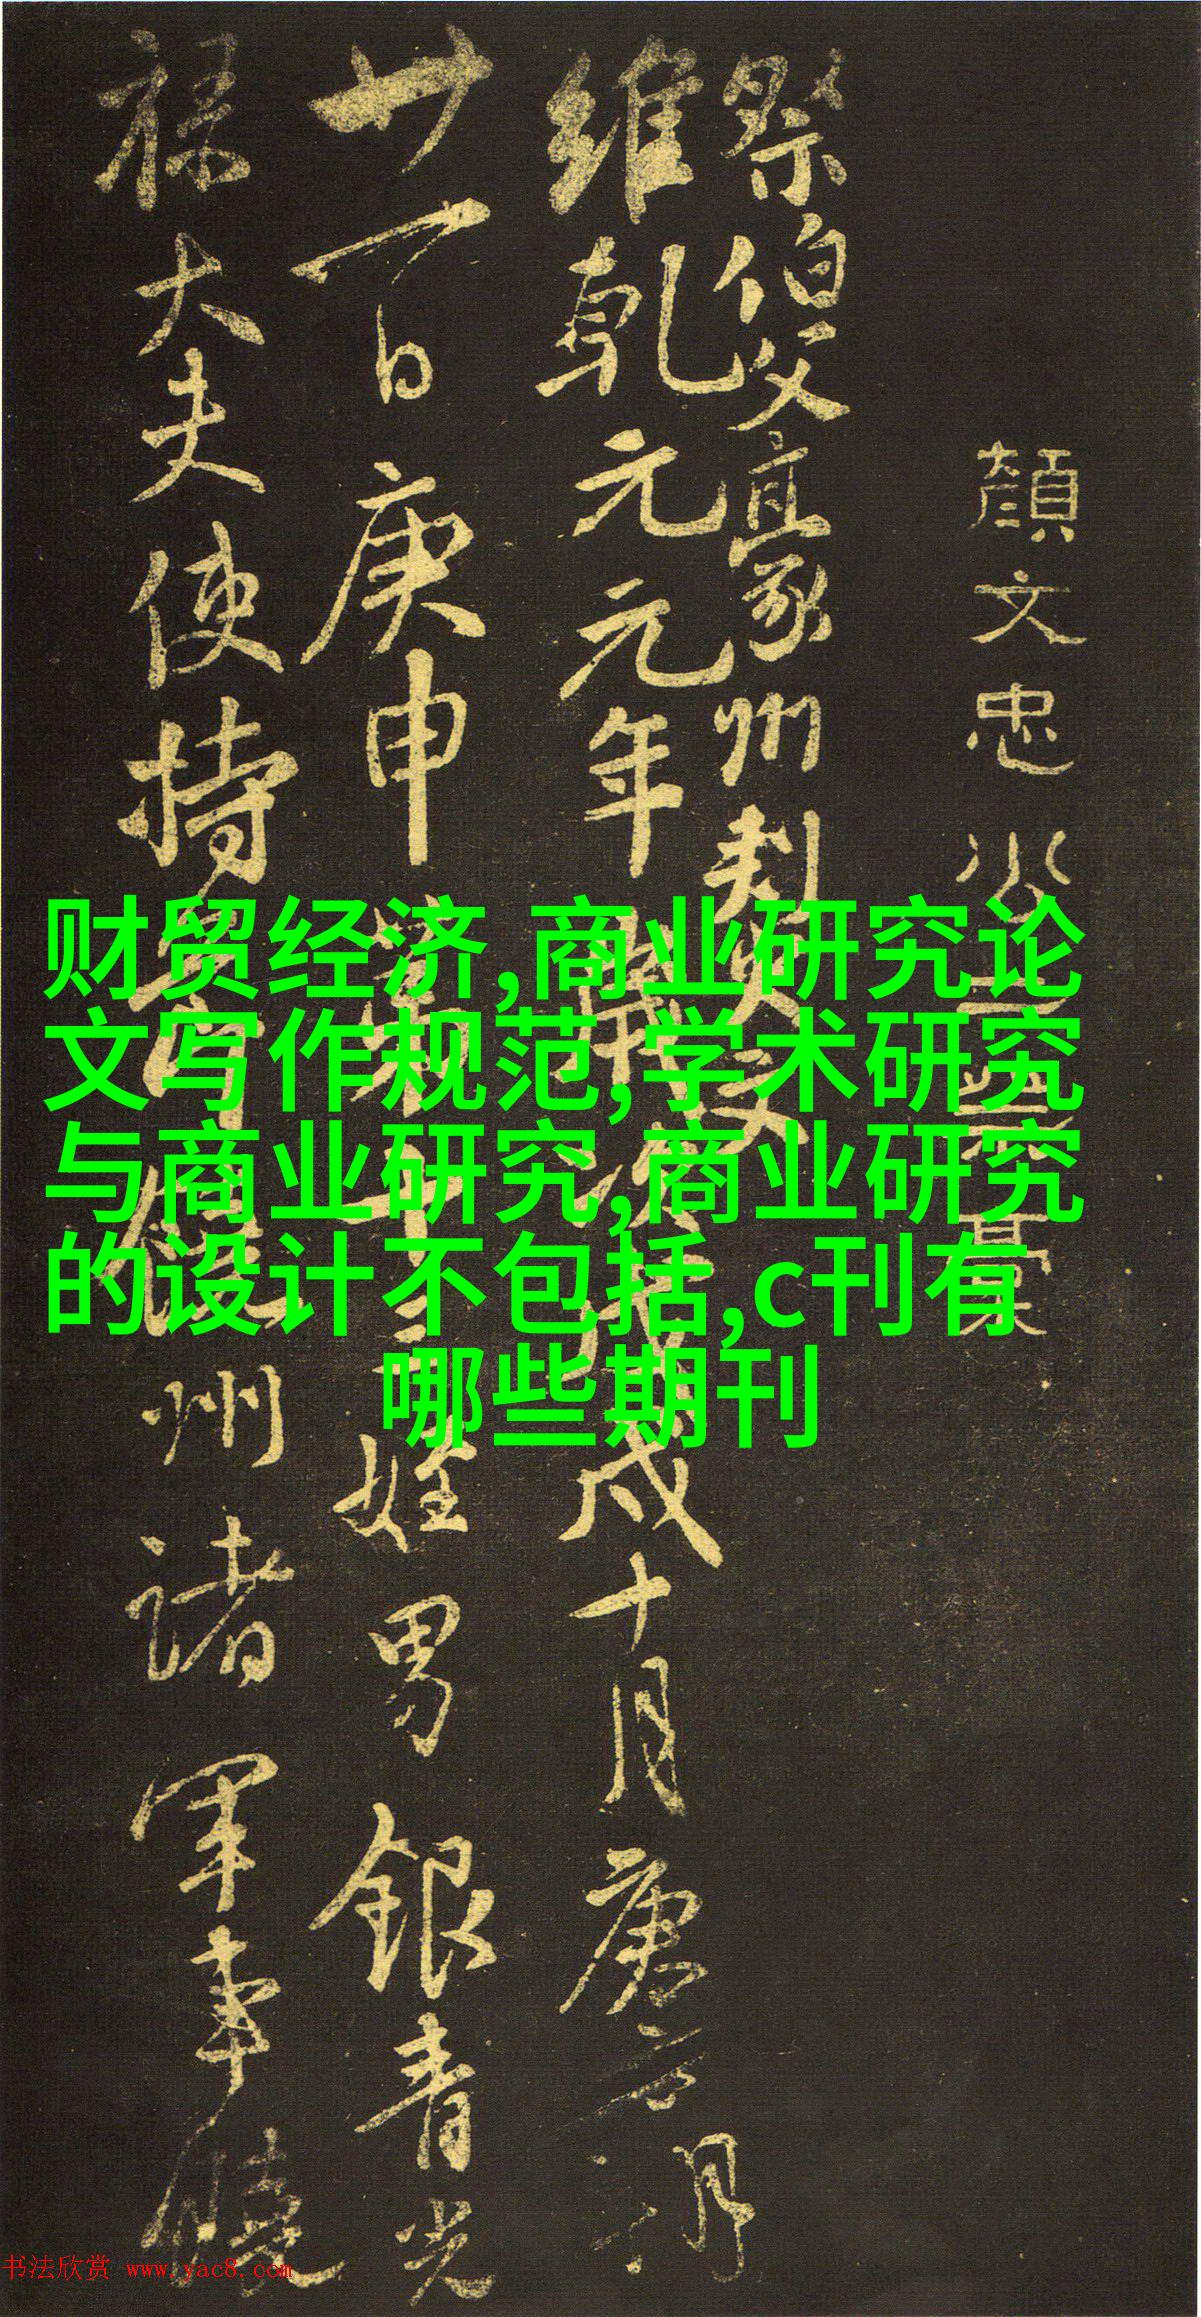 顏文忠公三藁
祭伯父豪州刺史文
維乾元元年歲次戊戌十月庚朔
廿一日庚申第十三姪男銀青光
祿大夫使持節饒州諸軍事饒
财贸经济,商业研究论
文写作规范,学术研究
与商业研究,商业研究
的设计不包括,c刊有
哪些期刊
书法欣赏 www.yac8.com